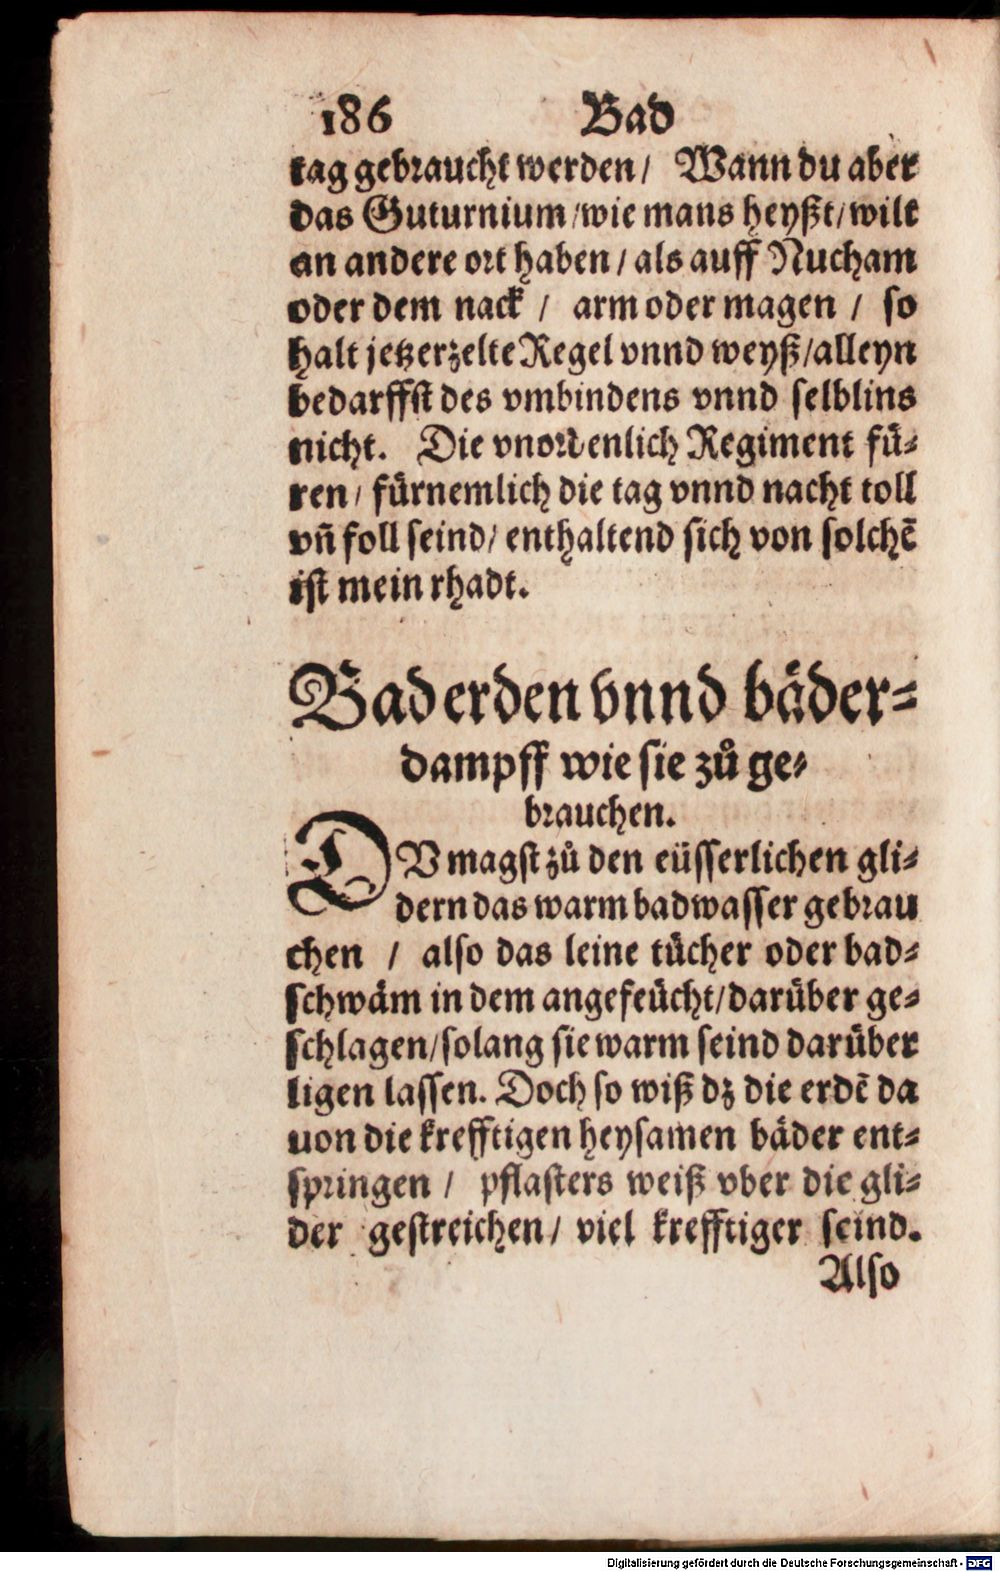 186 Bad
tag gebraucht werden/ Wann du aber
das Guturnium/wie mans heyßt/wilt
an andere ort haben/als auff Nucham
oder dem nack / arm oder magen / so
halt jetzerzelte Regel vnnd weyß/alleyn
bedarffst des vmbindens vnnd selblins
nicht. Die vnordenlich Regiment fü-
ren/ fürnemlich die tag vnnd nacht toll
vñ foll seind/ enthaltend sich von solchẽ
ist mein rhadt.
Bad erden vnnd bäder-
dampff wie sie zů ge-
brauchen.
DV magst zů den eüsserlichen gli-
dern das warm badwasser gebrau
chen / also das leine tücher oder bad-
schwäm in dem angefeücht/darüber ge-
schlagen/solang sie warm seind darüber
ligen lassen. Doch so wiß dz die erdẽ da
uon die krefftigen heysamen bäder ent-
springen / pflasters weiß vber die gli-
der gestreichen/ viel krefftiger seind.
Also
Digitalisierung gefördert durch die Deutsche Forschungsgemeinschaft - DFG